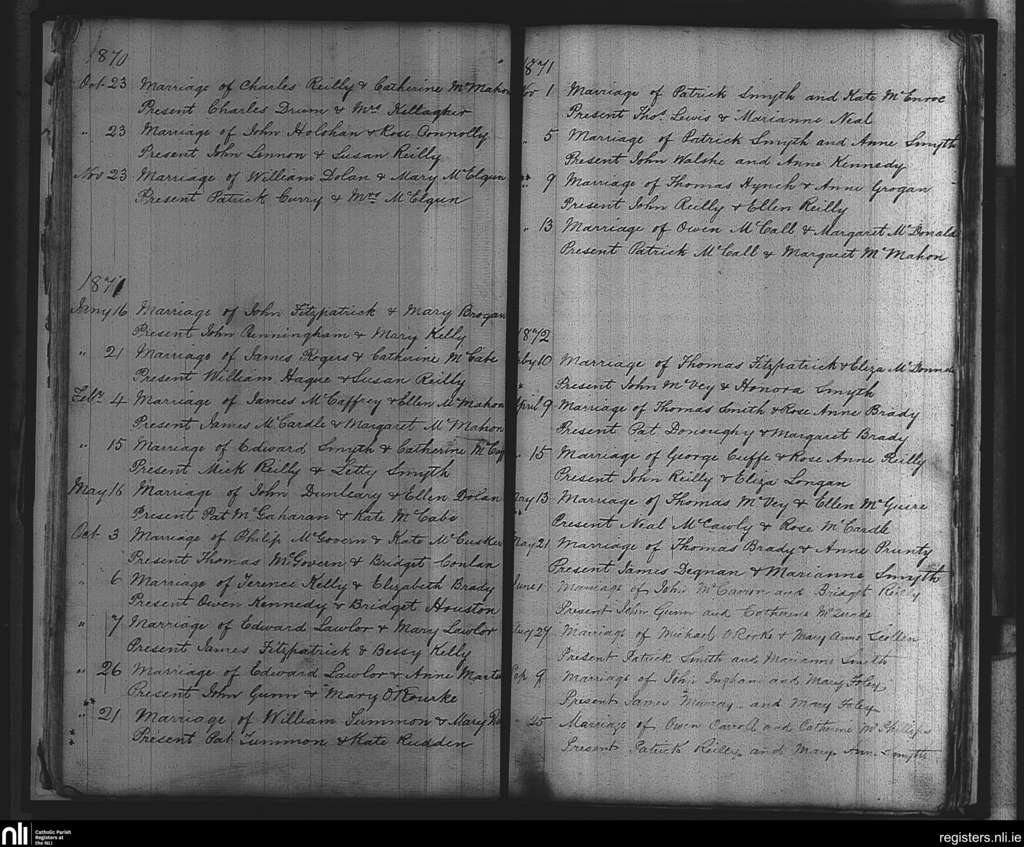 1870
Oct 23 Marriage of Charles Reilly & Catherine McMahon
Present Charles Drum & Mrs Kellagher
" 23 Marriage of John Holohan & Rose Connolly
Present John Lennon & Susan Reilly
Nov 23 Marriage of William Dolan & Mary McElgun
Present Patrick Curry & Mrs McElgun
1871
Jany 16 Marriage of John Fitzpatrick & Mary Brogan
Present John Benningham & Mary Kelly
" 21 Marriage of James Rogers & Catherine McCabe
Present William Hague & Susan Reilly
Feby 4 Marriage of James McCaffrey & Ellen McMahon
Present James McCardle & Margaret McMahon
" 15 Marriage of Edward Smyth & Catherine
Present Mick Reilly & Letty Smyth
May 16 Marriage of John Dunleary & Ellen Dolan
Present Pat McGaharan & Kate McCabe
Oct 3 Marriage of Philip McGovern & Kate McCusker
Present Thomas McGovern & Bridget Conlan
" 6 Marriage of Terence Kelly & Elizabeth Brady
Present Owen Kennedy & Bridget Houston
" 7 Marriage of Edward Lawlor & Mary Lawlor
Present James Fitzpatrick & Bessy Kelly
" 26 Marriage of Edward Lawlor & Anne
Present John Gunn & Mary O'Rourke
" 21 Marriage of William Tummon & Mary
Present Pat Tummon & Kate Rudden
1871
Nov 1 Marriage of Patrick Smyth and Kate McEnroe
Present Thos Lewis & Marianne Neal
" 5 Marriage of Patrick Smyth and Anne Smyth
Present John Walshe and Anne Kennedy
" 9 Marriage of Thomas Hynch & Anne Grogan
Present John Reilly & Ellen Reilly
" 13 Marriage of Owen McCall & Margaret McDonald
Present Patrick McCall & Margaret McMahon
1872
Feby 10 Marriage of Thomas Fitzpatrick & Eliza
Present John McVey & Honora Smyth
April 9 Marriage of Thomas Smith & Rose Anne Brady
Present Pat Donoughy & Margaret Brady
" 15 Marriage of George Cuffe & Rose Anne Reilly
Present John Reilly & Eliza Longan
May 13 Marriage of Thomas McVey & Ellen McGuire
Present Neal McCawly & Rose McCardle
May 21 Marriage of Thomas Brady & Anne Prunty
Present James Degnan & Marianne Smyth
June 1 Marriage of John McCarron and Bridget Reilly
Present John Gunn and Catherine McDade
Aug 27 Marriage of Michael O'Rorke & Mary Anne Scollen
Present Patrick Smith and Marianne Smith
Sep 9 Marriage of John Ingham and Mary Foley
Present James Murray and Mary Foley
" 25 Marriage of Owen Carroll and Catherine McPhillips
Present Patrick Reilly and Mary Ann Smyth
nli Catholic Parish
Registers at
the NLI
registers.nli.ie